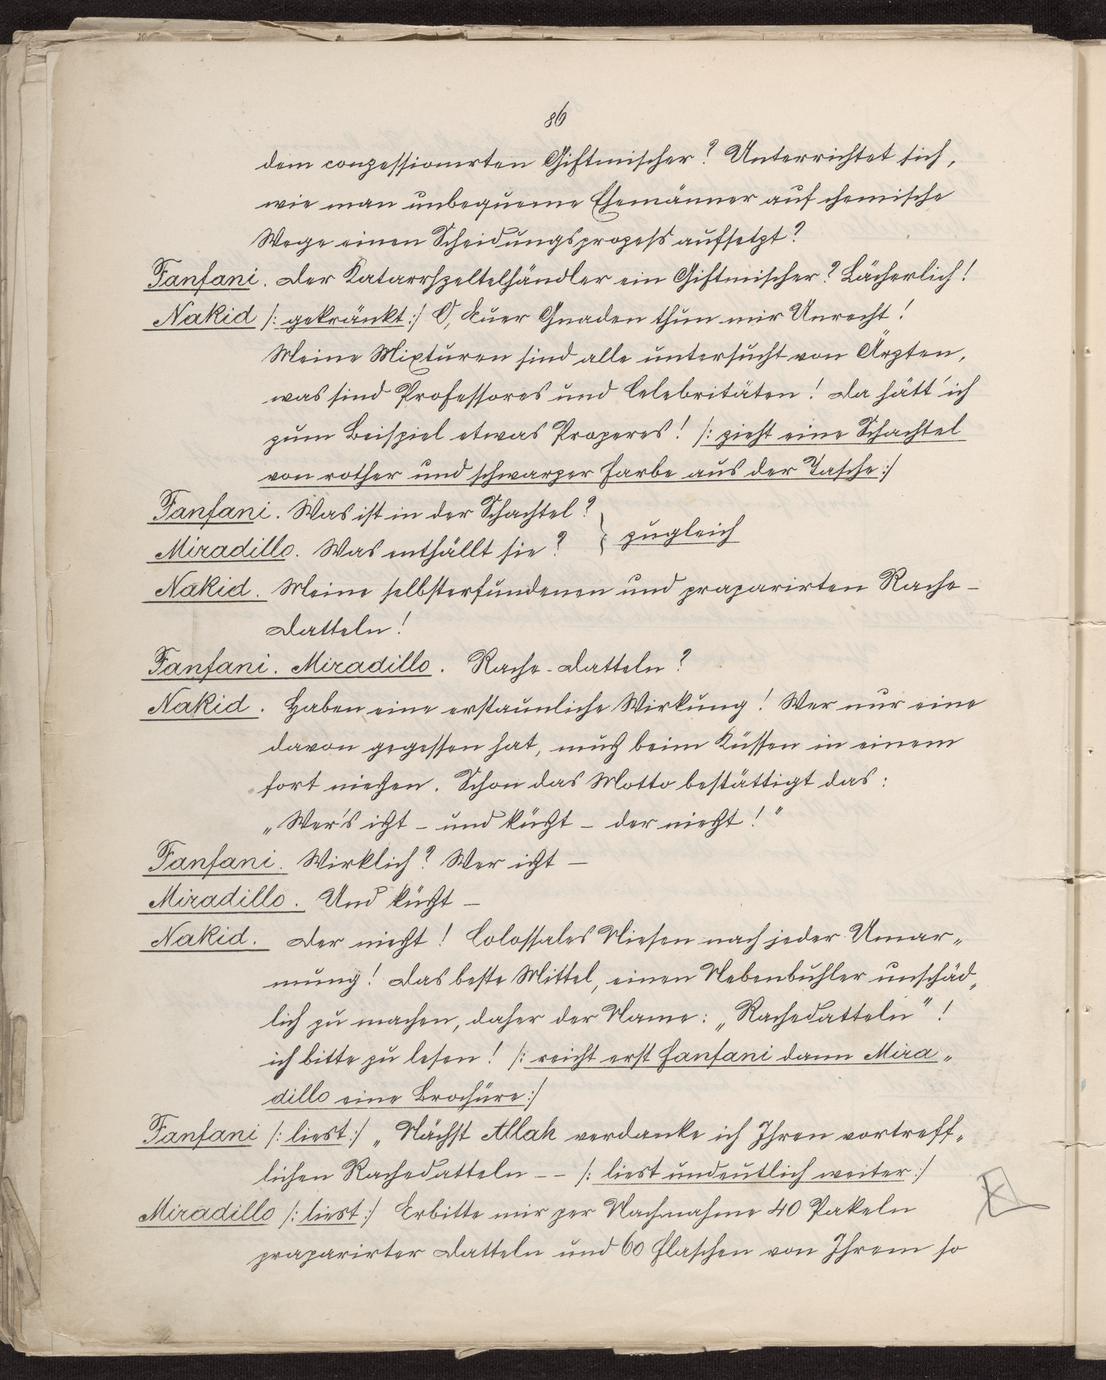 86
dem conzessionirten Giftmischer? Unterrichtet sich,
wie man unbequeme Ehemänner auf chemische
Wege einen Scheidungsprozess aufsetzt?
Fanfani. Der Katarrhzeltelhändler ein Giftmischer? Lächerlich!
Nakid /: gekränkt :/ O, Euer Gnaden thun mir Unrecht!
Meine Mixturen sind alle untersucht von Ärzten,
was sind Professores und Celebritäten! Da hätt' ich
zum Beispiel etwas Properes! /: zieht eine Schachtel
von rother und schwarzer Farbe aus der Tasche :/
Fanfani. Was ist in der Schachtel?
Miradillo. Was enthällt sie? } zugleich
Nakid. Meine selbsterfundenen und praparirten Rache-
Datteln!
Fanfani. Miradillo. Rache-Datteln?
Nakid. Haben eine erstaunliche Wirkung! Wer nur eine
davon gegessen hat, muß beim Küssen in einem
fort nießen. Schon das Motto bestättigt das:
„Wer's ißt - und küßt - der nießt!"
Fanfani. Wirklich? Wer ißt —
Miradillo. Und küßt —
Nakid. Der nießt! Colossales Niesen nach jeder Umar„
mung! Das beste Mittel, einen Nebenbuhler unschäd„
lich zu machen, daher der Name: „Rachedatteln"!
ich bitte zu lesen! /: reicht erst Fanfani dann Mira„
dillo eine Brochüre :/
Fanfani /: liest :/ „Nächst Allah verdanke ich Ihren vortreff„
lichen Rachedatteln -- /: liest undeutlich weiter :/
Miradillo /: liest :/ Erbitte mir per Nachnahme 40 Pakeln
praparirter Datteln und 60 Flaschen von Ihrem so